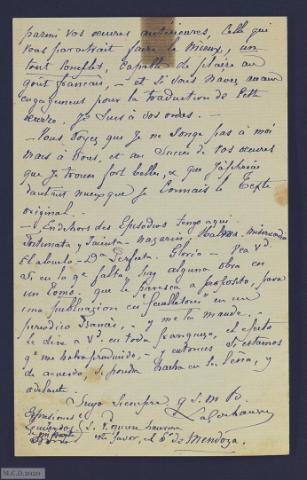 parmi vos œuvres antérieures, celle qui
vous paraîtrait faire le mieux, un
tout complet, capable de plaire au
goût français, – et si vous n'avez aucun
engagement pour la traduction de cette
œuvre, je suis à vos ordres. –
– Vous voyez que je ne songe pas à moi
mais à vous, et au succès de vos œuvres
que je trouve fort belles, & que j'apprécie
d'autant mieux que je connais le texte
original. –
– En dehors des Episodios tengo aqui:
Fortunata y Jacinta – Nazarin – Halma – Misericordia
El abuelo – Dª Perfecta. Gloria – Vea Vd
si en lo que falta hay alguna obra en
un tomo. que le parezca a proposito, para
una publicacion en "feuilleton" en un
periodico francés, – y me la mande.
le dire a Vd. con toda franqueza, el efecto
qe me habra producido, – y entonces si estamos
de acuerdo, se podra
adelante.
Suyo siempre q. s. m. b.
Expresiones
este favor, el Sr de Mendoza.
M.C.D. 2020